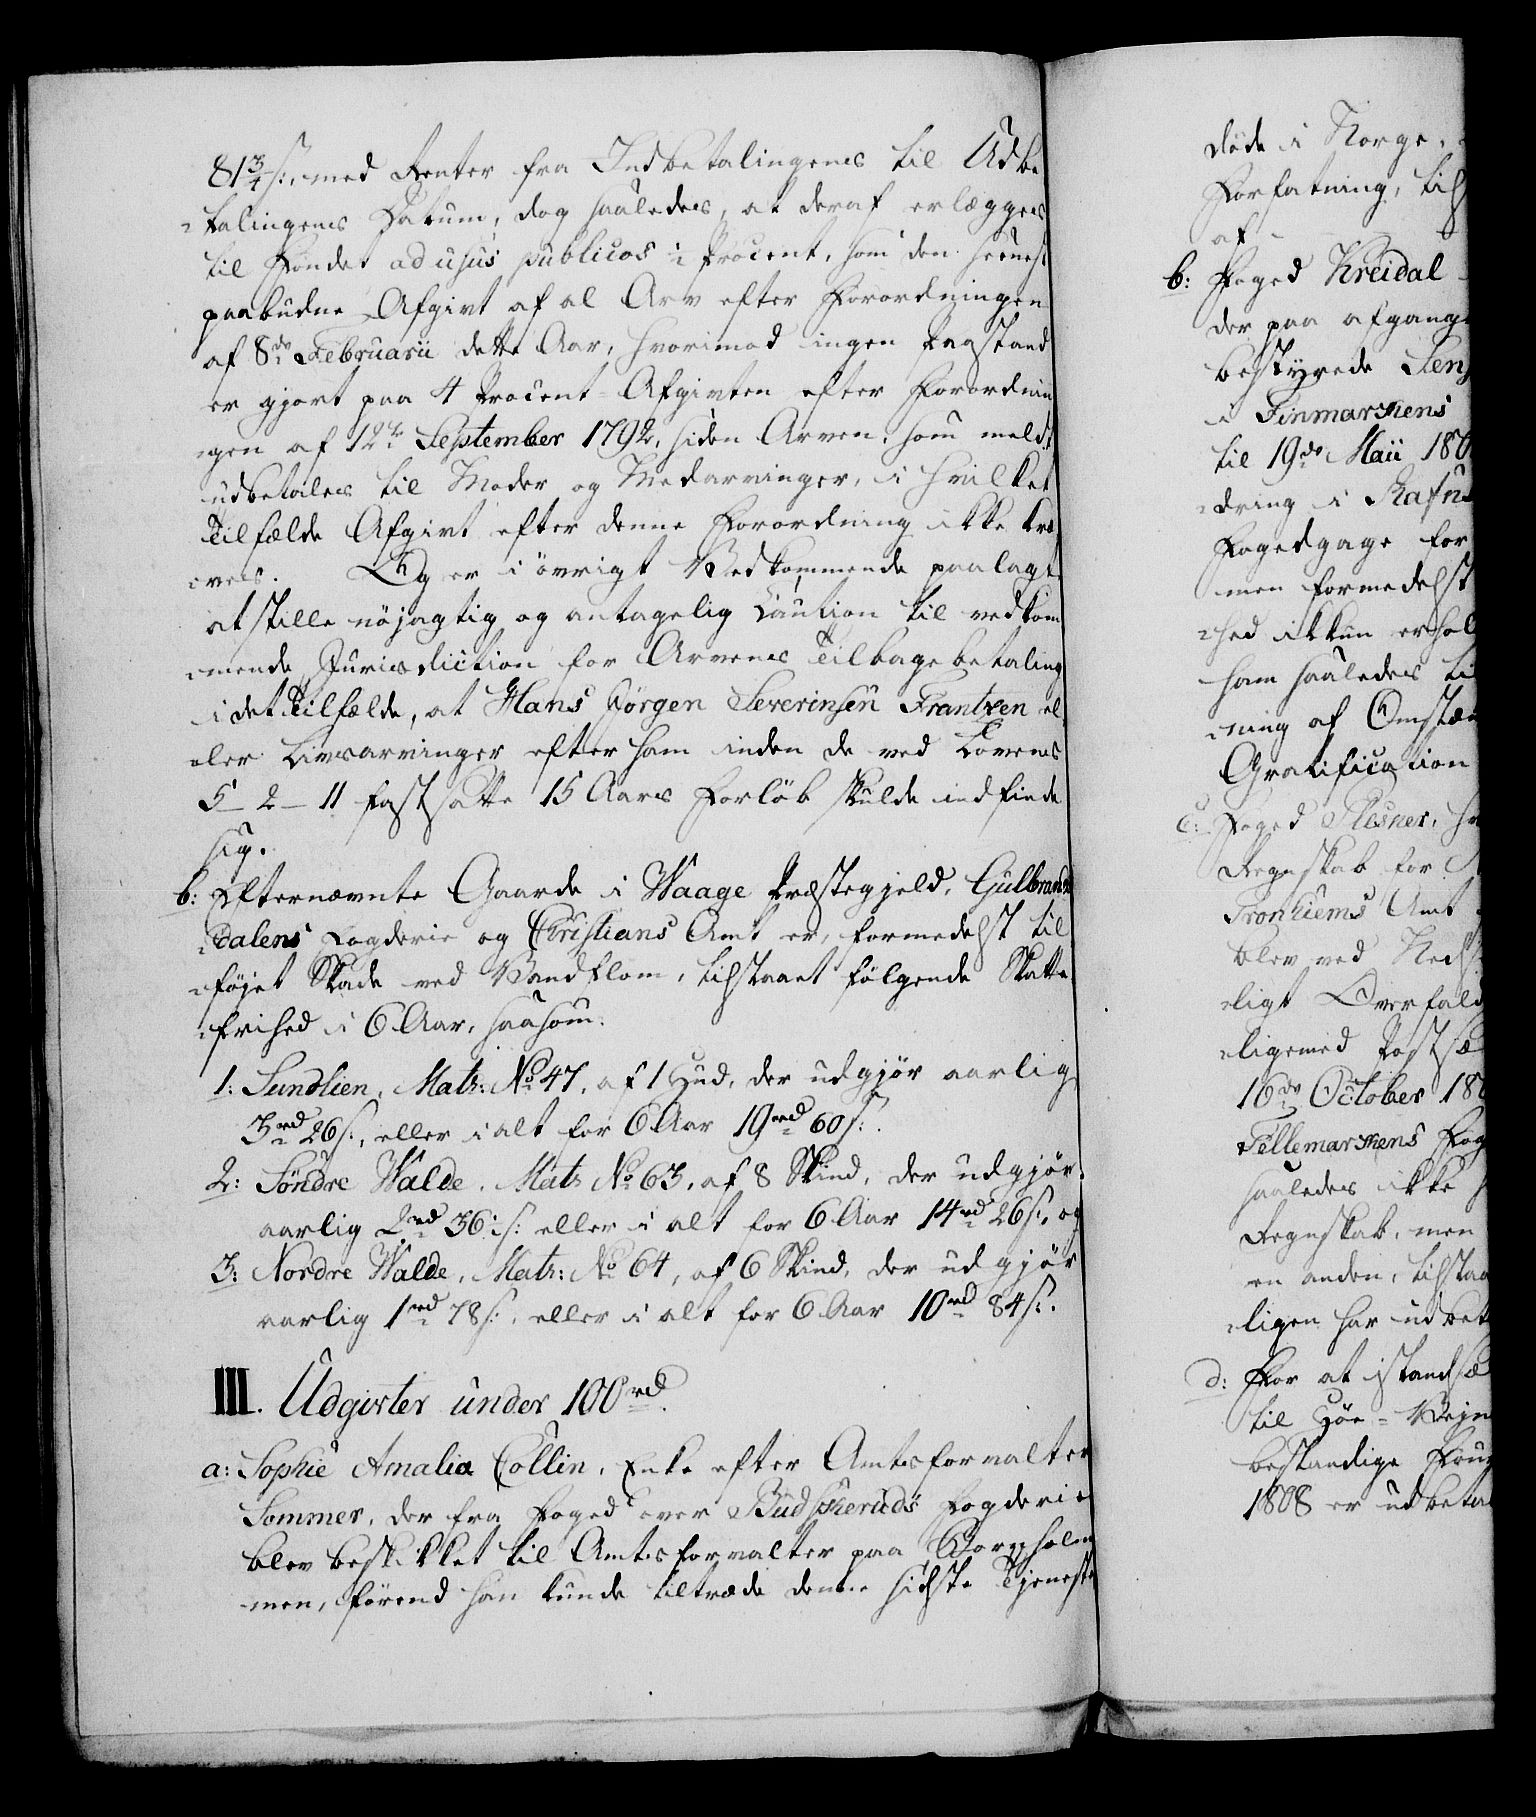 81¾ s:, med Renter fra Indbetalingens til Udbe
talingens Datum, dog saaledes, at deraf erlægges
til Fondet ad usus publicos ½ Procent, som den seenest
paabudne Afgivt af al Arv efter Forordningen
af 8de Februarii dette Aar, hvorimod ingen Paastand
er gjort paa 4 Procent Afgivten efter Forordnin
gen af 12te September 1792, siden Arven, som meldt
udbetales til Moder og Medarvinger, i hvilket
Tilfælde Afgivt efter denne Forordning ikke kræ
ves. Og er i øvrigt Vedkommende paalagt
at stille nøjagtig og antagelig Caution til vedkom
mende Jurisdiction for Arvens Tilbagebetaling
i det Tilfælde, at Hans Jørgen Severinsen Frantzen el
ler Livsarvinger efter ham inden de ved Lovens
5 - 2 - 11 fastsatte 15 Aars Forløb skulde indfinde
sig.
b: Efternævnte Gaarde i Waage Præstegjeld, Gulbrands
dalens Fogderie og Christians Amt er, formedelst til
føjet Skade ved Vandflom, tilstaaet følgende Skatte
frihed i 6 Aar, saasom:
1: Sundlien, Matr: No 47, af 1 Hud, der udgjør aarlig
3 rd 26 s:, eller i alt for 6 Aar 19 rd 60 s:.
2: Søndre Walde, Matr No 63, af 8 Skind, der udgjør
aarlig 2 rd 36½ s: eller i alt for 6 Aar 14 rd 26 s:, og
3: Nordre Walde, Matr: No 64, af 6 Skind, der udgjør
aarlig 1 rd 78 s:, eller i alt for 6 Aar 10 rd 84 s:.
III. Udgivter under 100 rd.
a: Sophie Amalia Collin, Enke efter Amtsforvalter
Sommer, der fra Foged over Budscheruds Fogderie
blev beskikket til Amtsforvalter paa Bornholm
men, førend han kunde tiltræde denne sidste Tjeneste
døde i Norge,
Forfatning, til
af
b: Foged Kreidal
der paa afgangne
bestyrede Senj
i Finmarkens
til 19de Maii 180
dring i Rafn
Fogedgage for
men formedelst
hed ikkun erhol
ham saaledes ti
ning af Omstæn
Gratification
c: Foged Plesner, hv
Regnskab for
Tronhiems Amt
blev ved
ligt Overfald
ligemed Postsæ
16de October 180
Tellemarkens Fog
saaledes ikke
Regnskab, men
en anden, tilstaa
ligen har udbet
d: For at istandsæ
til Høe-
bestandige
1808 er udbeta